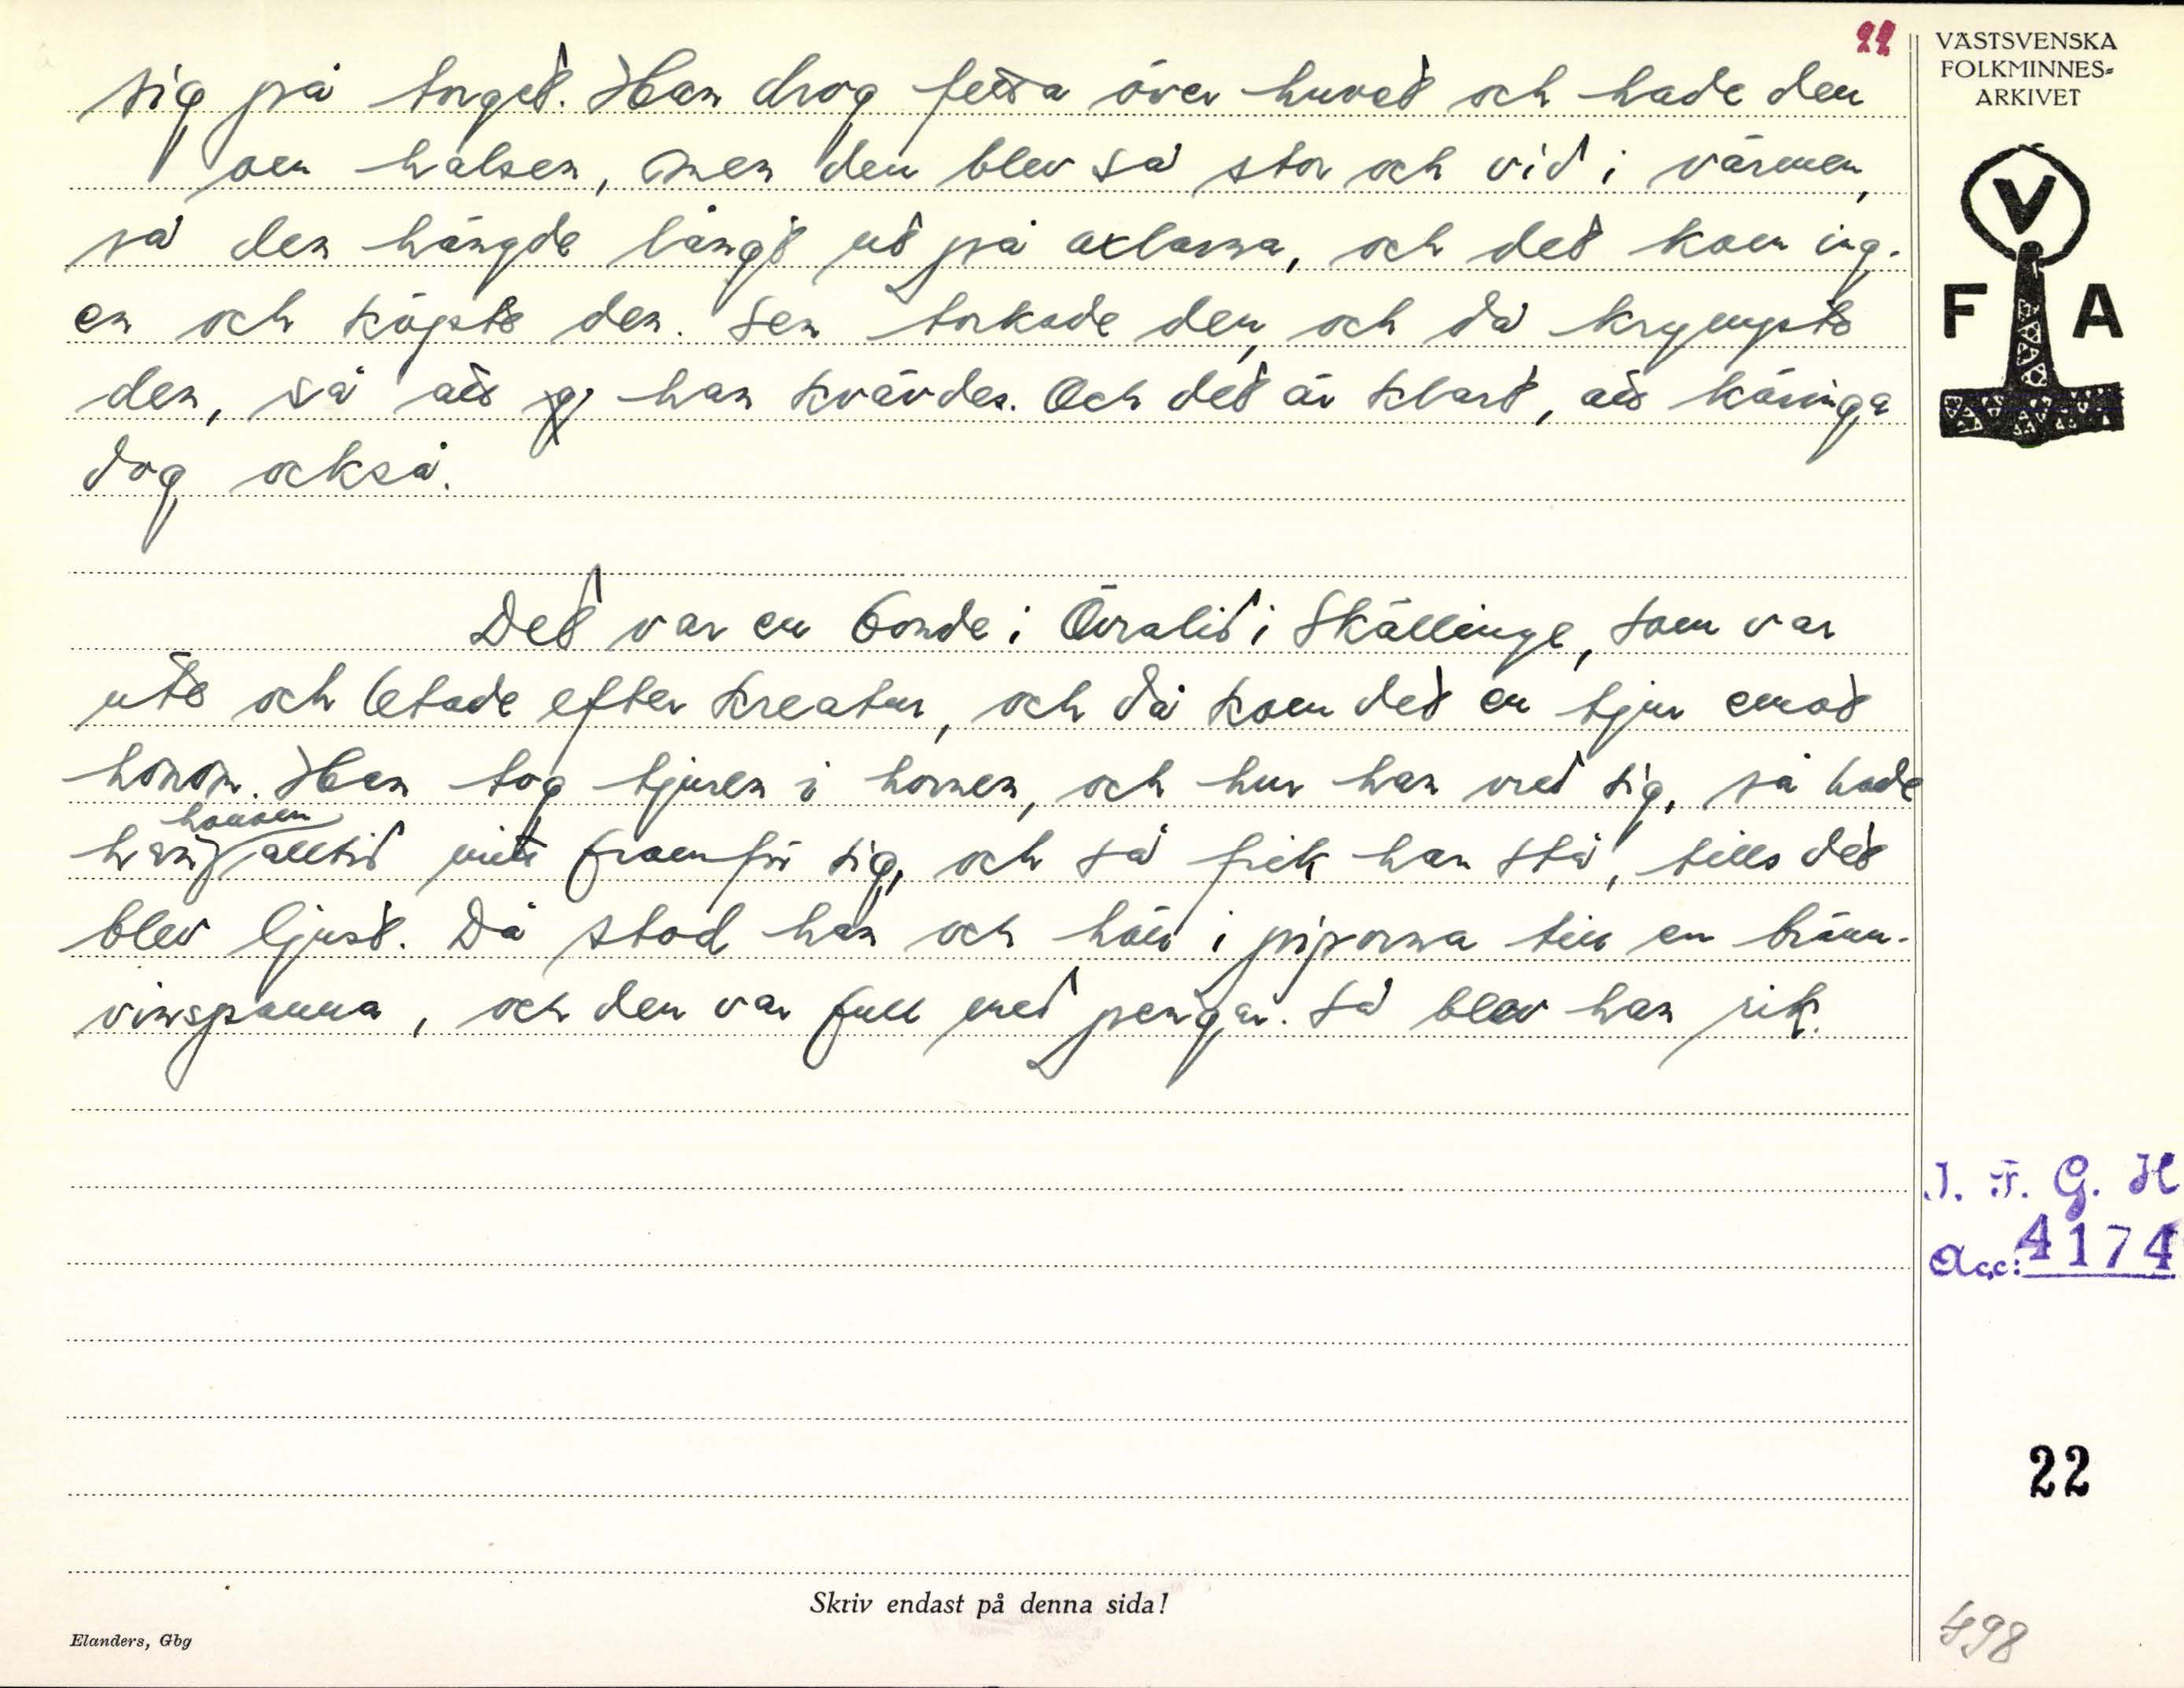 22
sig på torget. Han drog fetta över huvet och hade den
om halsen, men den blev så stor och vid i värmen,
så den hängde långt ut på axlarna, och det kom ing-
en och köpte den. Sen torkade den, och då krympte
den, så att han kvävdes. Och det är klart, att käringa
dog också.
Det var en bonde i Övralid i Skällinge, som var
ute och letade efter kreatur, och då kom det en tjur emot
honom. Han tog tjuren i hornen, och hur han vred sig, så hade
han honom alltid mitt framför sig, och så fick han stå, tills det
blev ljust. Då stod han och höll i piporna till en bränn-
vinspanna, och den var full med pengar. Så blev han rik.
VÄSTSVENSKA
FOLKMINNES-
ARKIVET
V
F A
I. F. G. H
Acc: 4174
22
498
Skriv endast på denna sida!
Elanders, Gbg